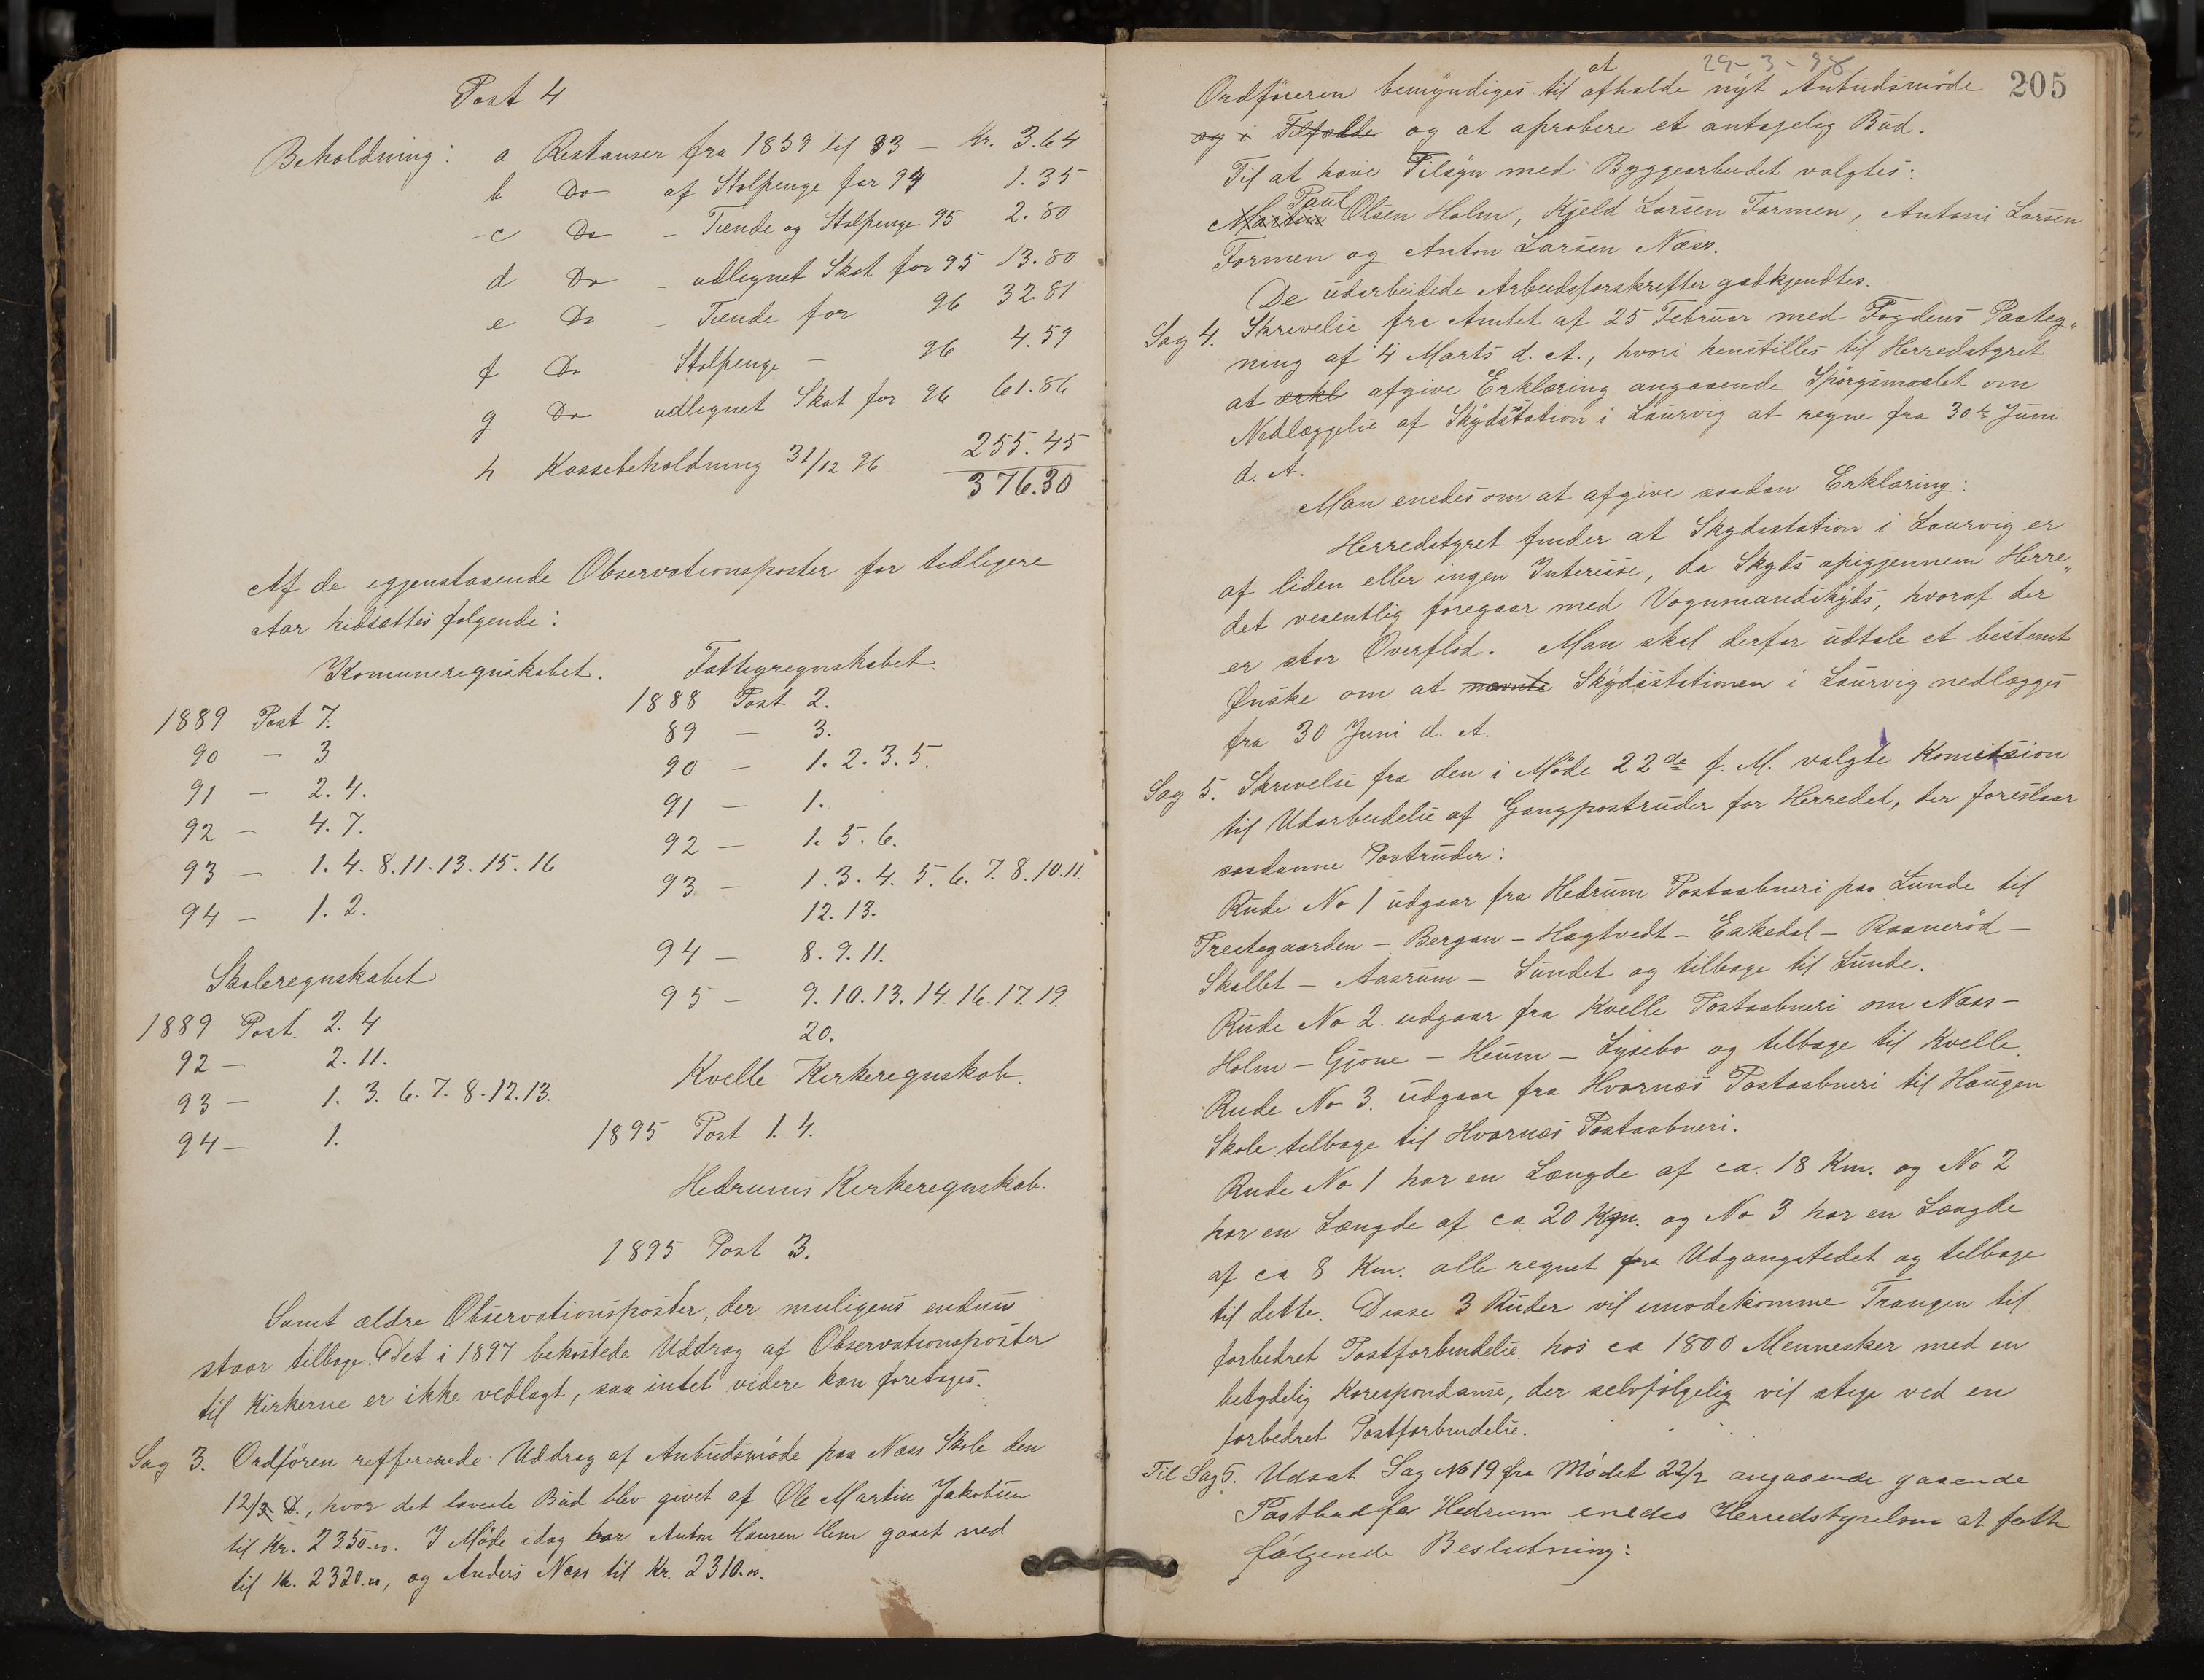 Post 4
Beholdning: a Restanser fra 1889 til 93 — Kr. 3.64
b Do af Stolpenge for 94 1.35
c Do — Tiende og Stolpenge 95 2.80
d Do — udlignet Skat for 95 13.80
e Do — Tiende for 96 32.81
f Do Stolpenge — 96 4.59
g Do udlignet Skat for 96 61.86
h Kassebeholdning 31/12 96 255.45
376.30
Af de igjenstaaende Observationsposter for tidligere
Aar hidsættes følgende:
Komuneregnskabet.
1889 Post 7.
90 — 3
91 — 2. 4.
92 — 4. 7.
93 — 1. 4. 8. 11. 13. 15. 16
94 — 1. 2.
Skoleregnskabet
1889 Post. 2. 4
92 — 2. 11.
93 — 1. 3. 6. 7. 8. 12. 13.
94 — 1.
Fattigregnskabet.
1888 Post 2.
89 — 3.
90 — 1. 2. 3. 5.
91 — 1.
92 — 1. 5. 6.
93 — 1. 3. 4. 5. 6. 7. 8. 10. 11.
12. 13.
94 — 8. 9. 11.
95 — 9. 10. 13. 14. 16. 17. 19.
20.
Kvelle Kirkeregnskab.
1895 Post 1. 4.
Hedrums Kirkeregnskab.
1895 Post 3.
Samt ældre Observationsposter, der muligens endnu
staar tilbage. Det i 1897 bekostede Uddrag af Observationsposter
til Kirkerne er ikke vedlagt, saa intet videre kan foretages.
Sag 3. Ordføren refférerede Uddrag af Anbudsmøde paa Næss Skole den
12/3 D., hvor det laveste Bud blev givet af Ole Martin Jakobsen
til Kr. 2350.00. I Møde idag har Anton Hansen Hem gaaet ned
til Kr. 2320.00, og Anders Næss til Kr. 2310.00.
29-3-98
205
Ordføreren bemyndiges til at afholde nyt Anbudsmøde
og i Tilfælde og at aprobere et antagelig Bud.
Til at have Tilsyn med Byggearbeidet valgtes:
Martin Paul Olsen Holm, Kjeld Larsen Farmen, Antoni Larsen
Farmen og Anton Larsen Næss.
De udarbeidede Arbeidsforskrifter godkjendtes.
Sag 4. Skrivelse fra Amtet af 25 Februar med Fogdens Paateg„
ning af 4 Marts d. A., hvori henstilles til Herredstyret
at erkl afgive Erklæring angaaende Spørgsmaalet om
Nedlæggelse af Skydsstation i Laurvig at regne fra 30te Juni
d. A.
Man enedes om at afgive saadan Erklæring:
Herredstyret finder at Skydsstation i Laurvig er
af liden eller ingen Interesse, da Skyds opigjennem Herre„
det vesentlig foregaar med Vognmandskyds, hvoraf der
er stor Overflod. Man skal derfor udtale et bestemt
Ønske om at nævnte Skydsstationen i Laurvig nedlægges
fra 30 Juni d. A.
Sag 5. Skrivelse fra den i Møde 22de f. M. valgte Komitsion
til Udarbeidelse af Gangpostruder for Herredet, der foreslaar
saadanne Postruder:
Rude No 1 udgaar fra Hedrum Postaabneri paa Lunde til
Prestegaarden — Bergan — Hagtvedt — Eskedal — Raanerød —
Skallet — Aasrum — Sundet og tilbage til Lunde.
Rude No 2. udgaar fra Kvelle Postaabneri om Næss —
Holm — Gjone — Heum — Lysebo og tilbage til Kvelle.
Rude No 3. udgaar fra Hvarnæs Postaabneri til Haugen
Skole tilbage til Hvarnæs Postaabneri.
Rude No 1 har en Længde af ca. 18 Km. og No 2
har en Længde af ca 20 Km. og No 3 har en Længde
af ca 8 Km. alle regnet fra Udgangstedet og tilbage
til dette. Disse 3 Ruder vil imødekomme Trangen til
forbedret Postforbindelse hos ca 1800 Mennesker med en
betydelig Korespondanse, der selvfølgelig vil stige ved en
forbedret Postforbindelse.
Til Sag 5. Udsat Sag No 19 fra Mødet 22/2 angaaende gaaende
Postbud for Hedrum enedes Herredstyrelsen at fatte
følgende Beslutning: